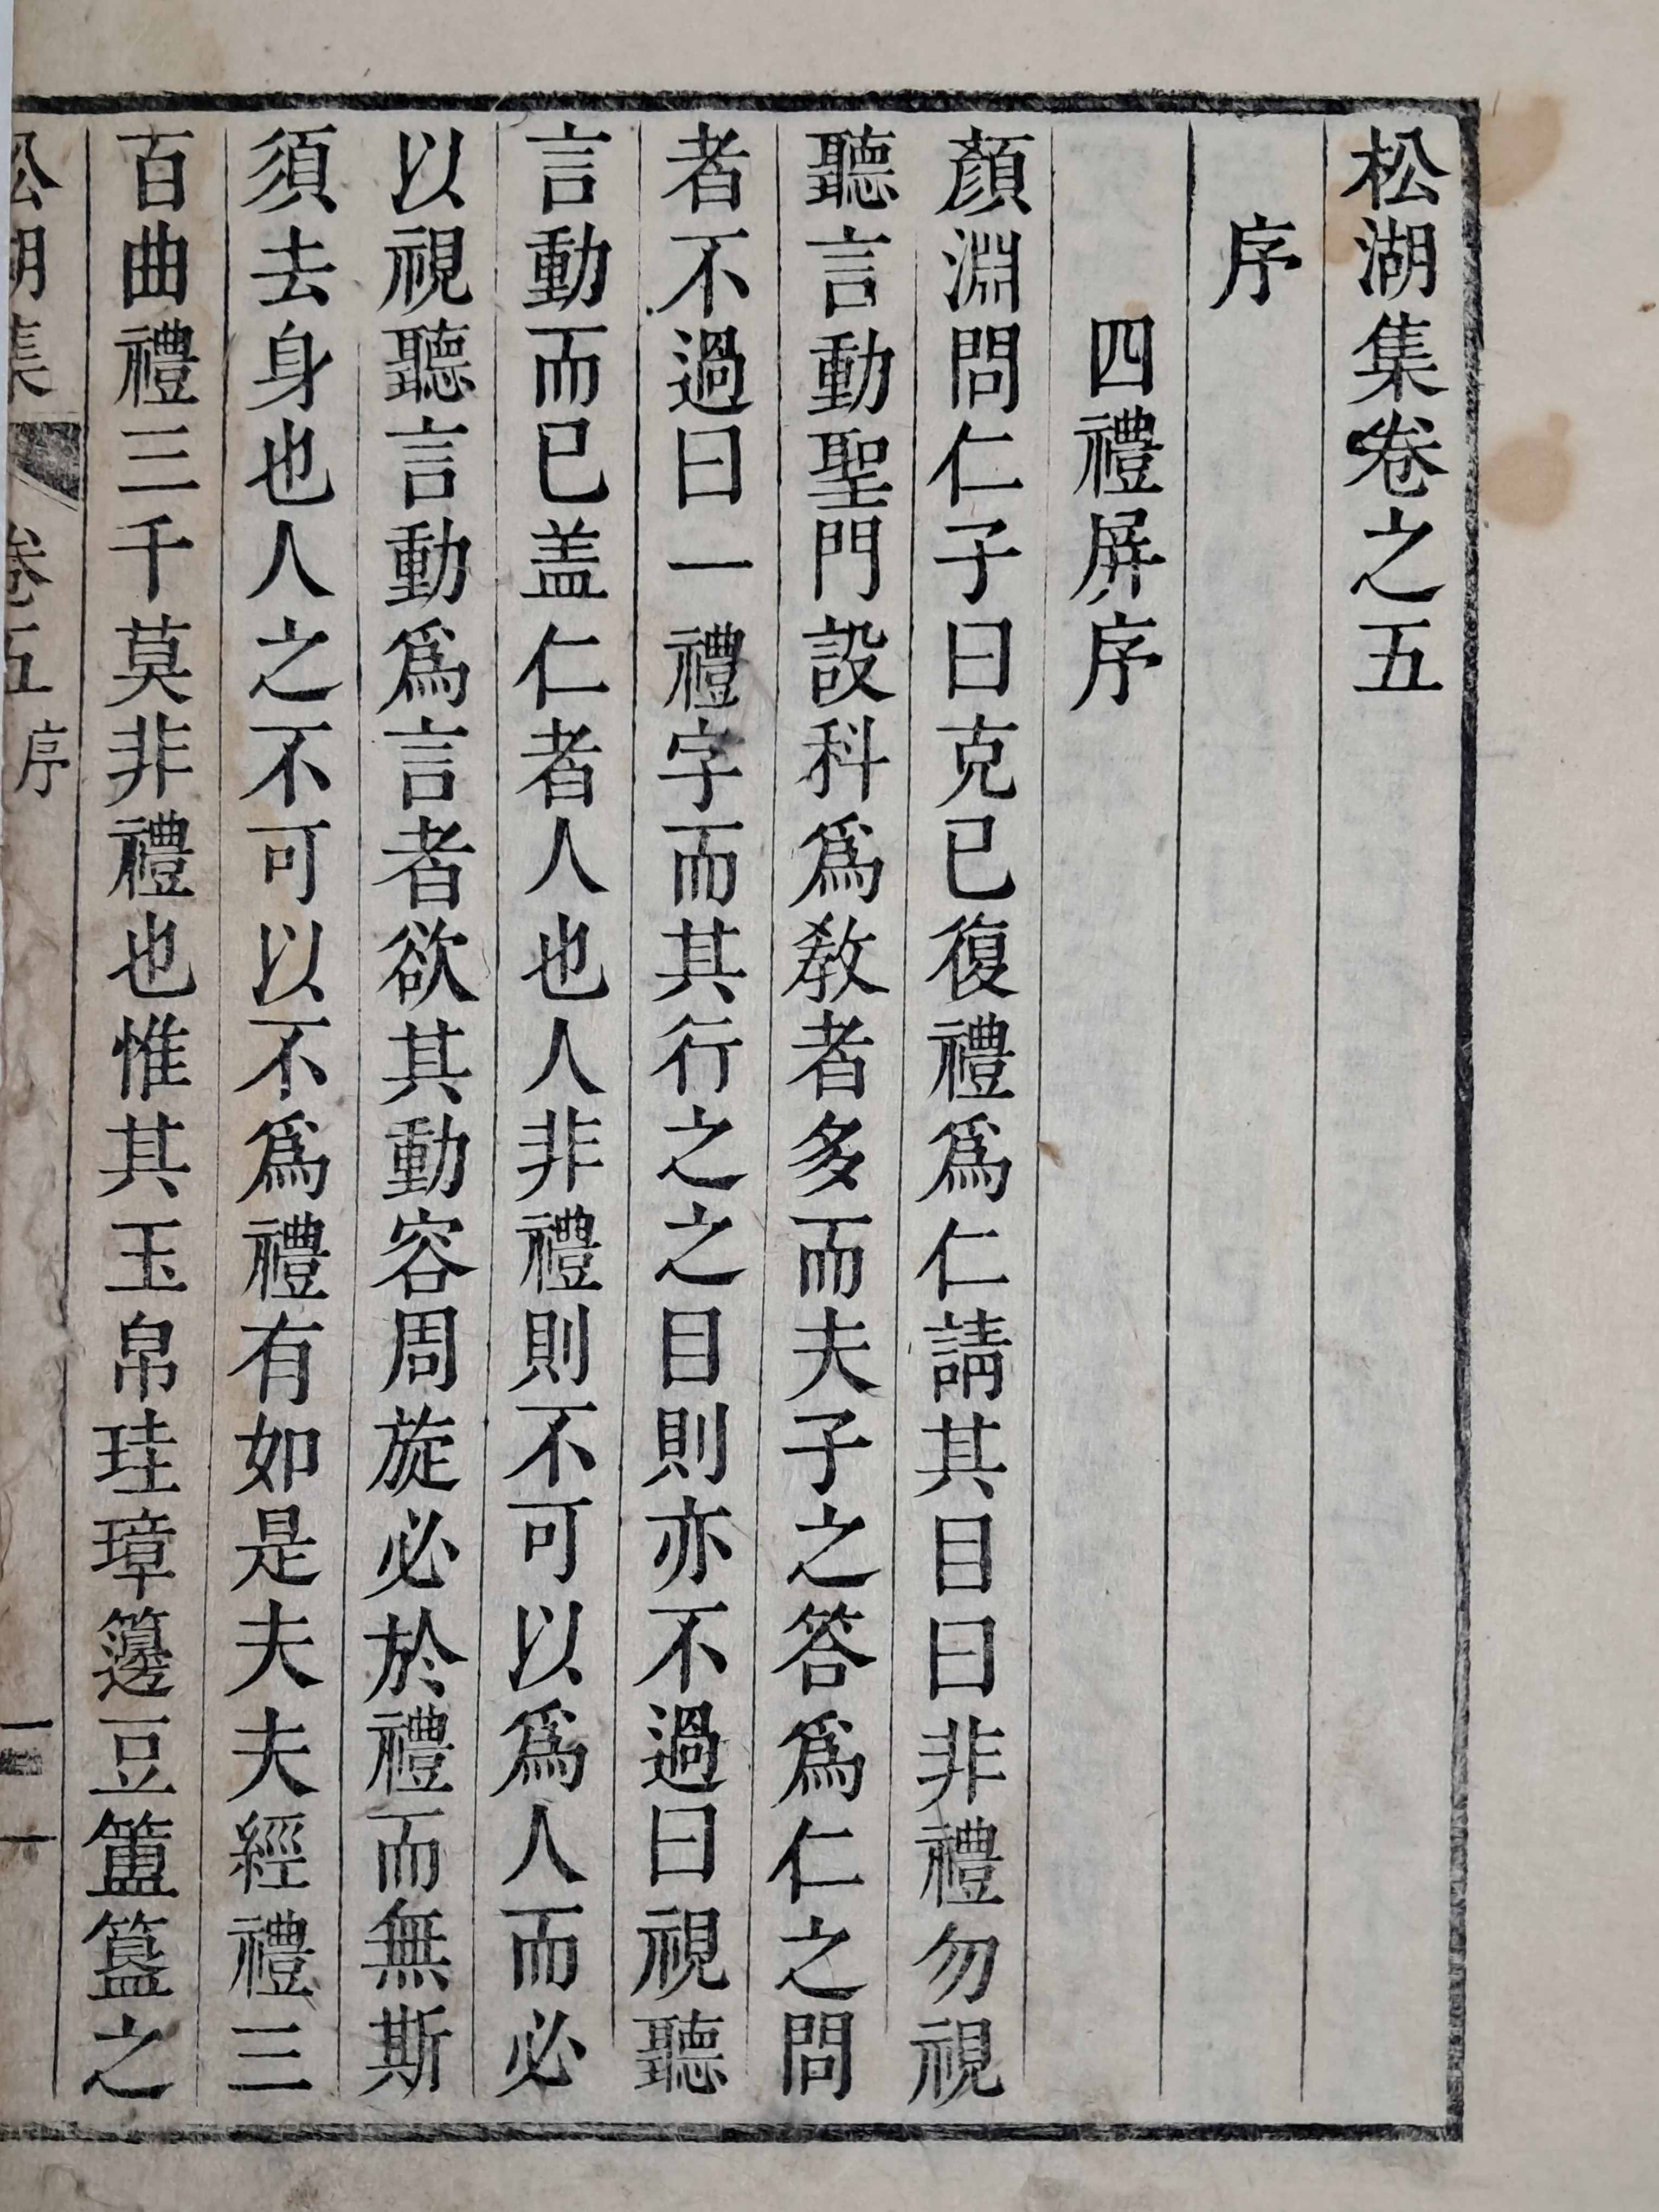 松湖集卷之五
序
四禮屏序
顏淵問仁子曰克已復禮爲仁請其目曰非禮勿視
聽言動聖門設科爲敎者多而夫子之答爲仁之問
者不過曰一禮字而其行之之目則亦不過曰視聽
言動而已盖仁者人也人非禮則不可以爲人而必
以視聽言動爲言者欲其動容周旋必於禮而無斯
須去身也人之不可以不爲禮有如是夫夫經禮三
百曲禮三千莫非禮也惟其玉帛珪璋籩豆簠簋之
松湖集 卷五 序 一